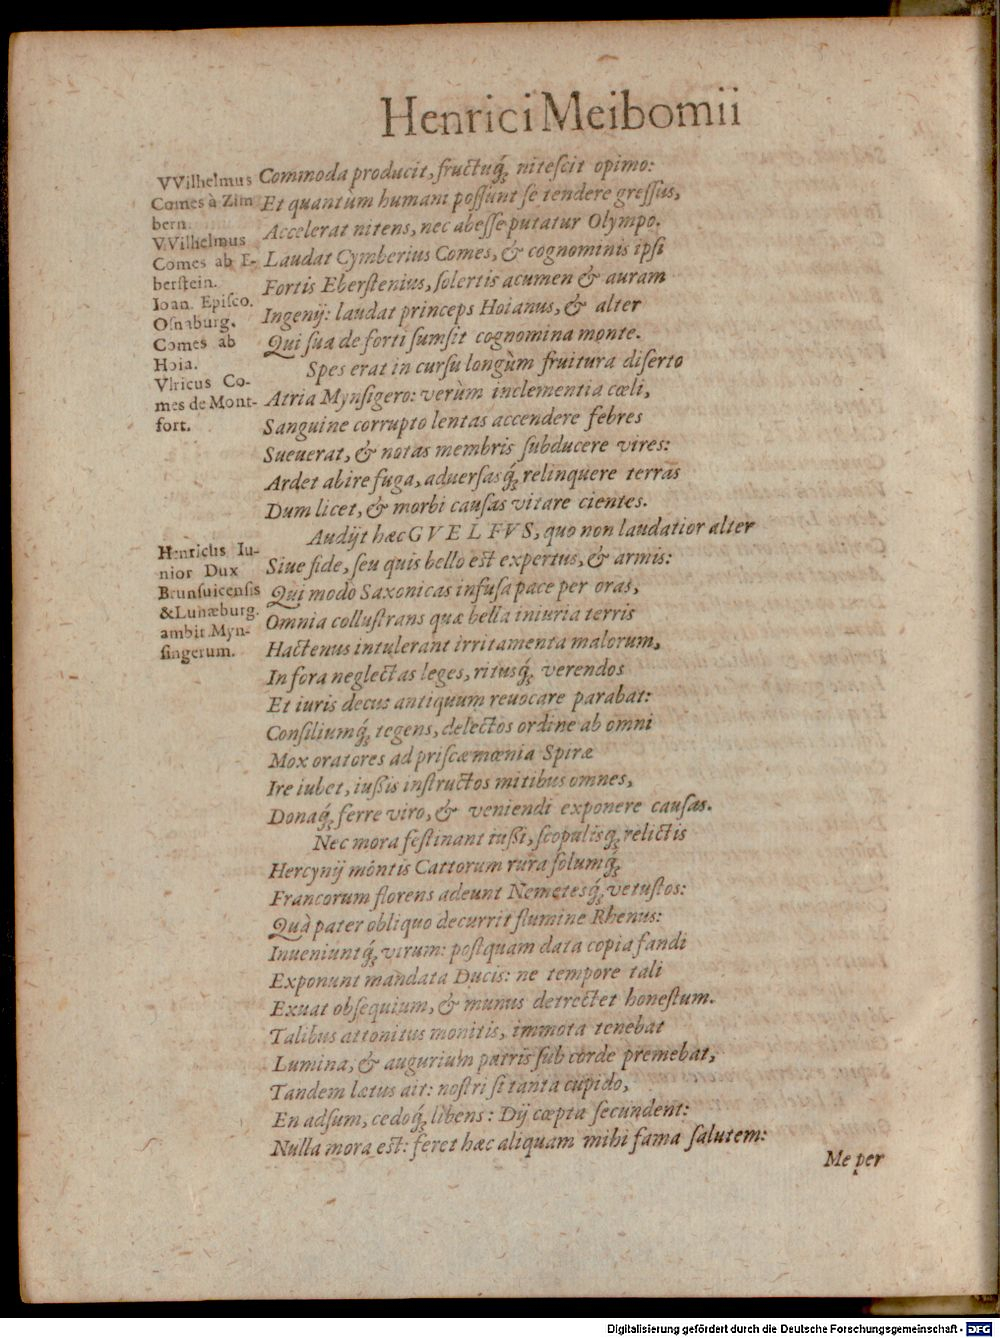 Henrici Meibomii
VVilhelmus
Comes à Zim
bern.
VVilhelmus
Comes ab E-
berstein.
Ioan. Episco.
Osnaburg.
Comes ab
Hoia.
Vlricus Co-
mes de Mont-
fort.
Commoda producit, fructuq́ꝫ niteſcit opimo:
Et quantùm humani poſſunt ſe tendere greſſus,
Accelerat nitens, nec abeſſe putatur Olympo.
Laudat Cymberius Comes, & cognominis ipſi
Fortis Eberſtenius, ſolertis acumen & auram
Ingenij: laudat princeps Hoianus, & alter
Qui ſua de forti ſumſit cognomina monte.
Spes erat in curſu longùm fruitura diſerto
Atria Mynſigero: verùm inclementia cœli,
Sanguine corrupto lentas accendere febres
Sueuerat, & notas membris ſubducere vires:
Ardet abire fuga, aduerſasq́ꝫ relinquere terras
Dum licet, & morbi cauſas vitare cientes.
Audijt hæc GVELFVS, quo non laudatior alter
Henricus Iu-
nior Dux
Brunſuicenſis
& Lunæburg.
ambit Myn-
ſingerum.
Siue fide, ſeu quis bello eſt expertus, & armis:
Qui modò Saxonicas infuſa pace per oras,
Omnia colluſtrans quæ bella iniuria terris
Hactenus intulerant irritamenta malorum,
In fora neglectas leges, ritusq́ꝫ verendos
Et iuris decus antiquum reuocare parabat:
Conſiliumq́ꝫ tegens, delectos ordine ab omni
Mox oratores ad priſcæ mœnia Spiræ
Ire iubet, iuſſis inſtructos mitibus omnes,
Donaq́ꝫ ferre viro, & veniendi exponere cauſas.
Nec mora feſtinant iuſſi, ſcopulisq́ꝫ relictis
Hercynij montis Cattorum rura ſolumq́ꝫ
Francorum florens adeunt Nemetesq́ꝫ vetuſtos:
Quà pater obliquo decurrit flumine Rhenus:
Inueniuntq́ꝫ virum: poſtquam data copia fandi
Exponunt mandata Ducis: ne tempore tali
Exuat obſequium, & munus detrectet honeſtum.
Talibus attonitus monitis, immota tenebat
Lumina, & augurium patris ſub corde premebat,
Tandem lætus ait: noſtri ſi tanta cupido,
En adſum, cedoq́ꝫ libens: Dij cœpta ſecundent:
Nulla mora eſt: feret hæc aliquam mihi fama ſalutem:
Me per
Digitalisierung gefördert durch die Deutsche Forschungsgemeinschaft - DFG